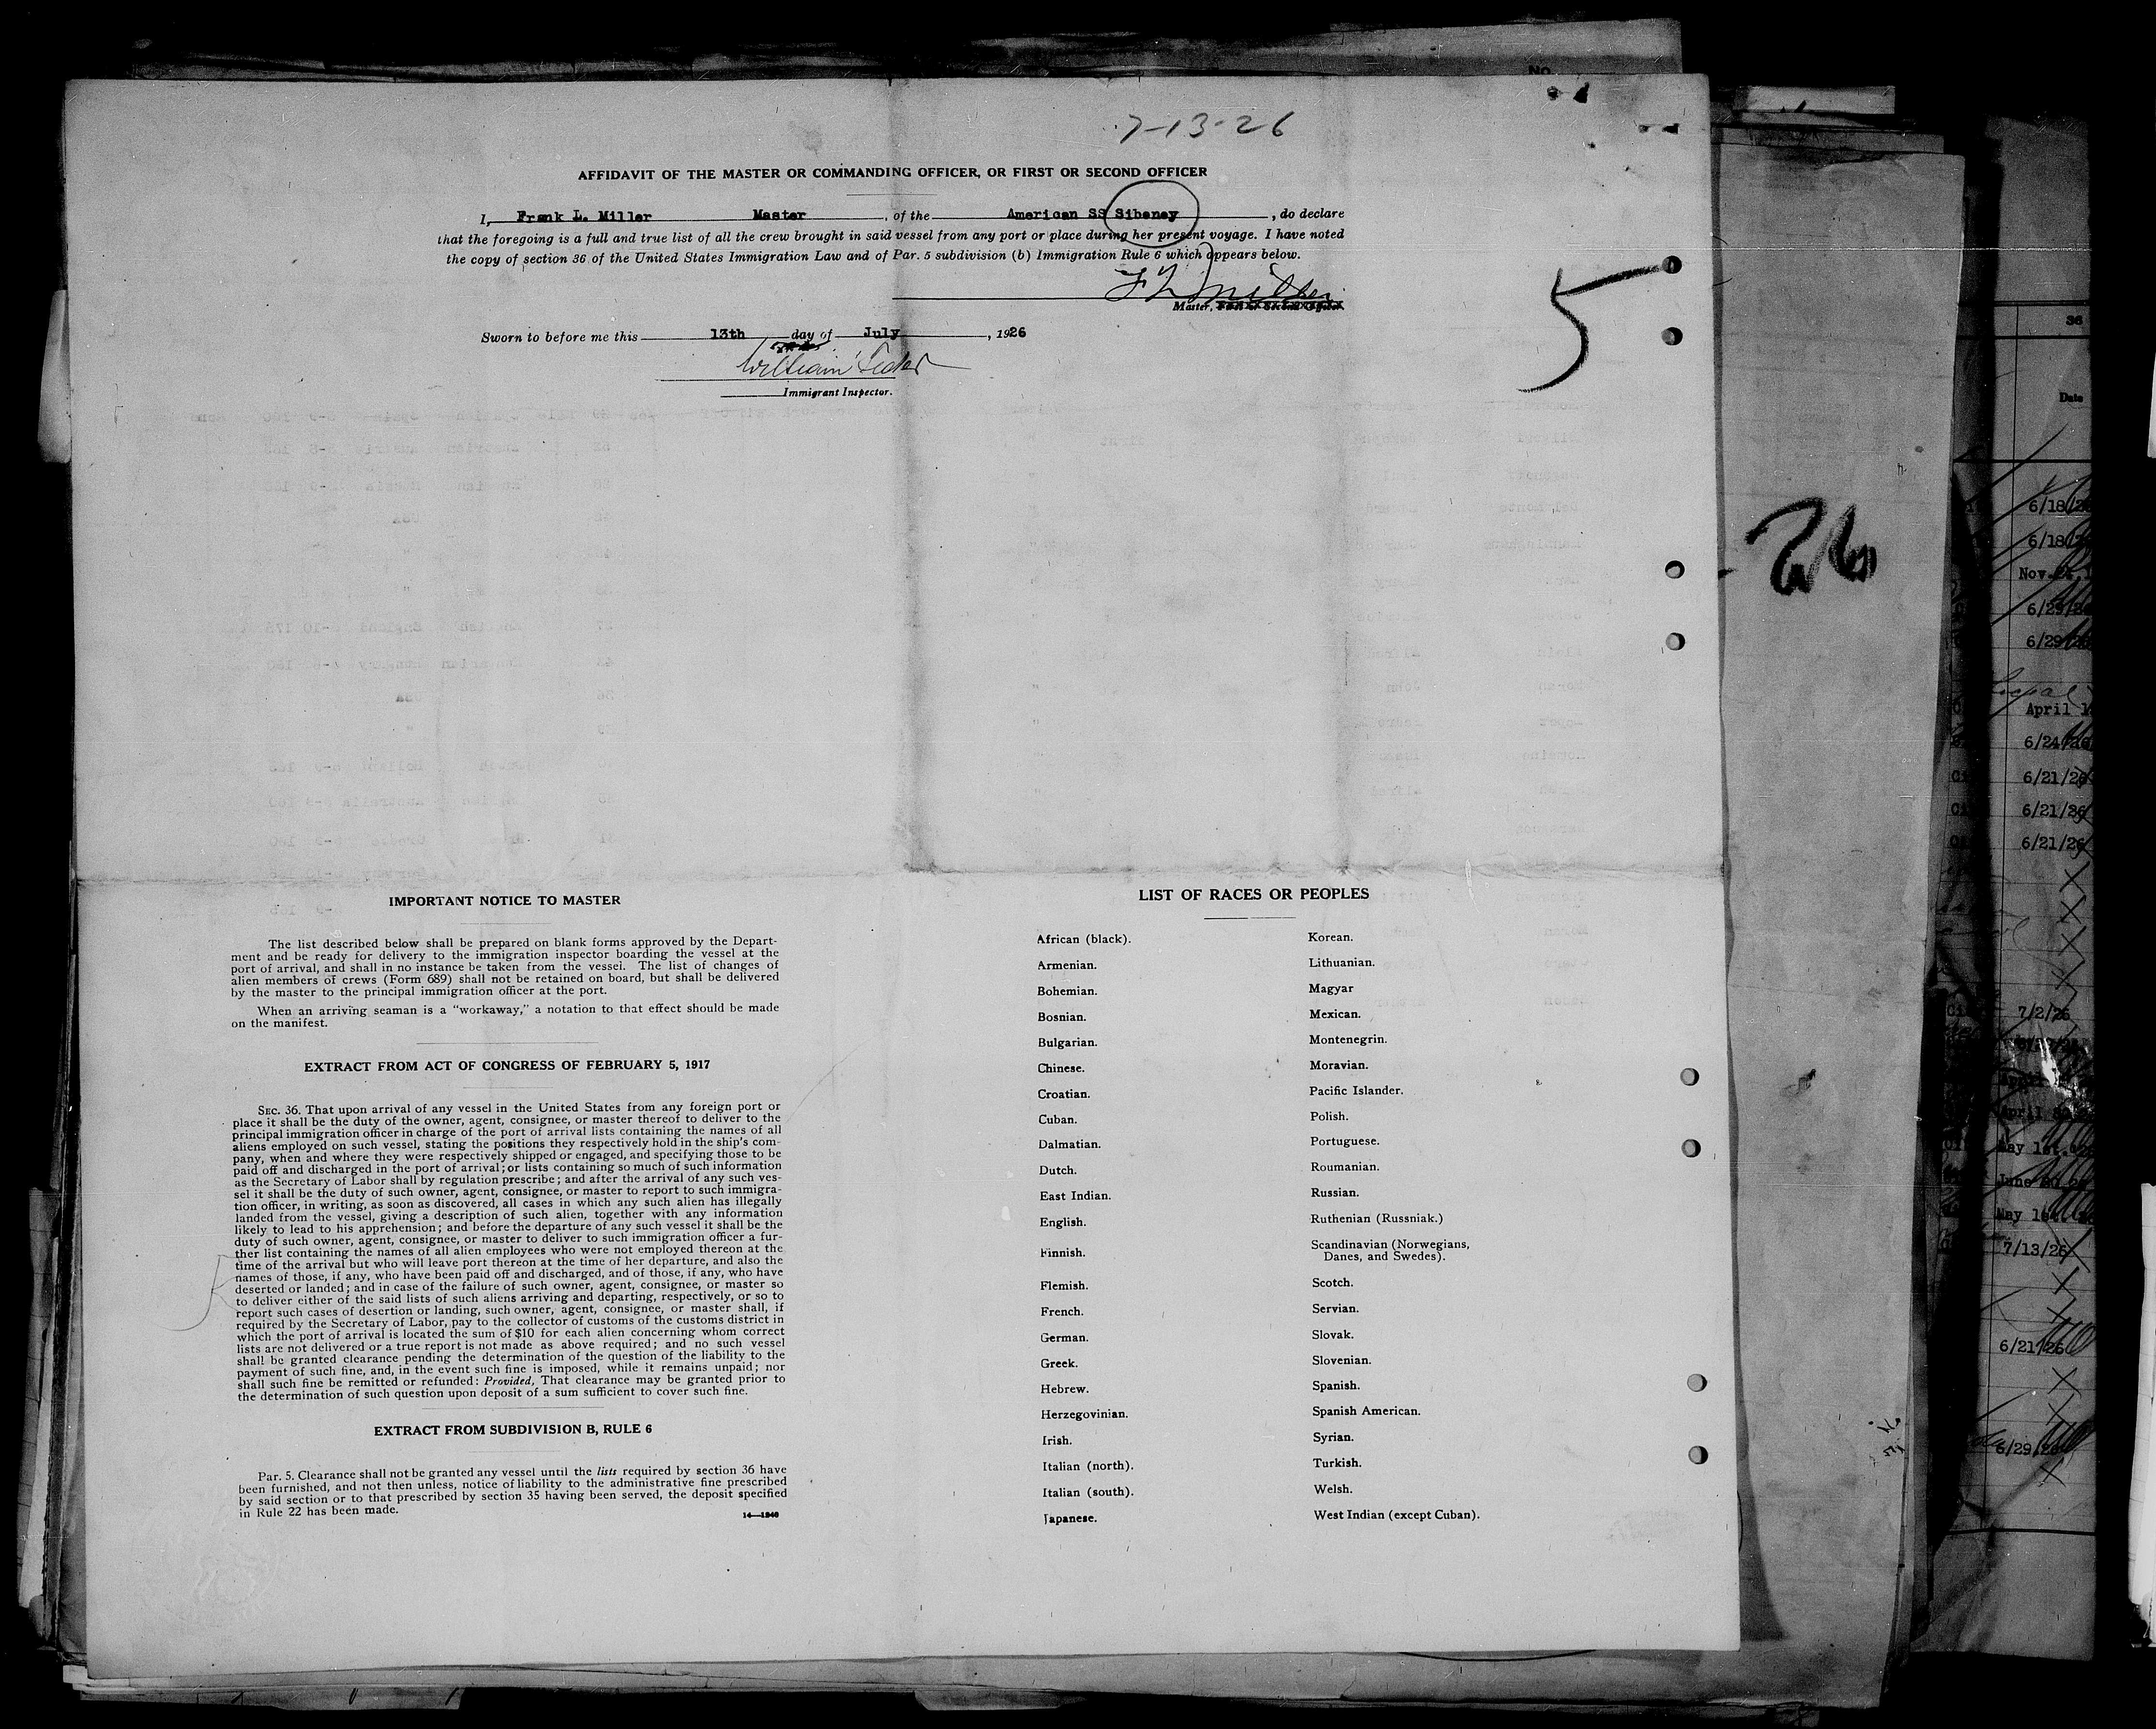 No.
7-13-26
AFFIDAVIT OF THE MASTER OR COMMANDING OFFICER, OR FIRST OR SECOND OFFICER
I, Frank L. Miller Master, of the American SS Siboney, do declare
that the foregoing is a full and true list of all the crew brought in said vessel from any port or place during her present voyage. I have noted
the copy of section 36 of the United States Immigration Law and of Par. 5 subdivision (b) Immigration Rule 6 which appears below.
F L Miller
Master,
5
Sworn to before me this 13th day of July, 1926
William
Immigrant Inspector.
26
IMPORTANT NOTICE TO MASTER
The list described below shall be prepared on blank forms approved by the Depart-
ment and be ready for delivery to the immigration inspector boarding the vessel at the
port of arrival, and shall in no instance be taken from the vessel. The list of changes of
alien members of crews (Form 689) shall not be retained on board, but shall be delivered
by the master to the principal immigration officer at the port.
When an arriving seaman is a "workaway," a notation to that effect should be made
on the manifest.
EXTRACT FROM ACT OF CONGRESS OF FEBRUARY 5, 1917
SEC. 36. That upon arrival of any vessel in the United States from any foreign port or
place it shall be the duty of the owner, agent, consignee, or master thereof to deliver to the
principal immigration officer in charge of the port of arrival lists containing the names of all
aliens employed on such vessel, stating the positions they respectively hold in the ship's com-
pany, when and where they were respectively shipped or engaged, and specifying those to be
paid off and discharged in the port of arrival; or lists containing so much of such information
as the Secretary of Labor shall by regulation prescribe; and after the arrival of any such ves-
sel it shall be the duty of such owner, agent, consignee, or master to report to such immigra-
tion officer, in writing, as soon as discovered, all cases in which any such alien has illegally
landed from the vessel, giving a description of such alien, together with any information
likely to lead to his apprehension; and before the departure of any such vessel it shall be the
duty of such owner, agent, consignee, or master to deliver to such immigration officer a fur-
ther list containing the names of all alien employees who were not employed thereon at the
time of the arrival but who will leave port thereon at the time of her departure, and also the
names of those, if any, who have been paid off and discharged, and of those, if any, who have
deserted or landed; and in case of the failure of such owner, agent, consignee, or master so
to deliver either of the said lists of such aliens arriving and departing, respectively, or so to
report such cases of desertion or landing, such owner, agent, consignee, or master shall, if
required by the Secretary of Labor, pay to the collector of customs of the customs district in
which the port of arrival is located the sum of $10 for each alien concerning whom correct
lists are not delivered or a true report is not made as above required; and no such vessel
shall be granted clearance pending the determination of the question of the liability to the
payment of such fine, and, in the event such fine is imposed, while it remains unpaid; nor
shall such fine be remitted or refunded: Provided, That clearance may be granted prior to
the determination of such question upon deposit of a sum sufficient to cover such fine.
EXTRACT FROM SUBDIVISION B, RULE 6
Par. 5. Clearance shall not be granted any vessel until the lists required by section 36 have
been furnished, and not then unless, notice of liability to the administrative fine prescribed
by said section or to that prescribed by section 35 having been served, the deposit specified
in Rule 22 has been made.
14—1940
LIST OF RACES OR PEOPLES
African (black).
Armenian.
Bohemian.
Bosnian.
Bulgarian.
Chinese.
Croatian.
Cuban.
Dalmatian.
Dutch.
East Indian.
English.
Finnish.
Flemish.
French.
German.
Greek.
Hebrew.
Herzegovinian.
Irish.
Italian (north).
Italian (south).
Japanese.
Korean.
Lithuanian.
Magyar
Mexican.
Montenegrin.
Moravian.
Pacific Islander.
Polish.
Portuguese.
Roumanian.
Russian.
Ruthenian (Russniak.)
Scandinavian (Norwegians,
Danes, and Swedes).
Scotch.
Servian.
Slovak.
Slovenian.
Spanish.
Spanish American.
Syrian.
Turkish.
Welsh.
West Indian (except Cuban).
36
Date
6/18/26
6/18/26
Nov.
6/29/26
6/29/26
April 1
6/24/26
6/21/26
6/21/26
6/21/26
7/2/26
April
May 1st.
June 30
May 1st.
7/13/26
6/21/26
6/29/26